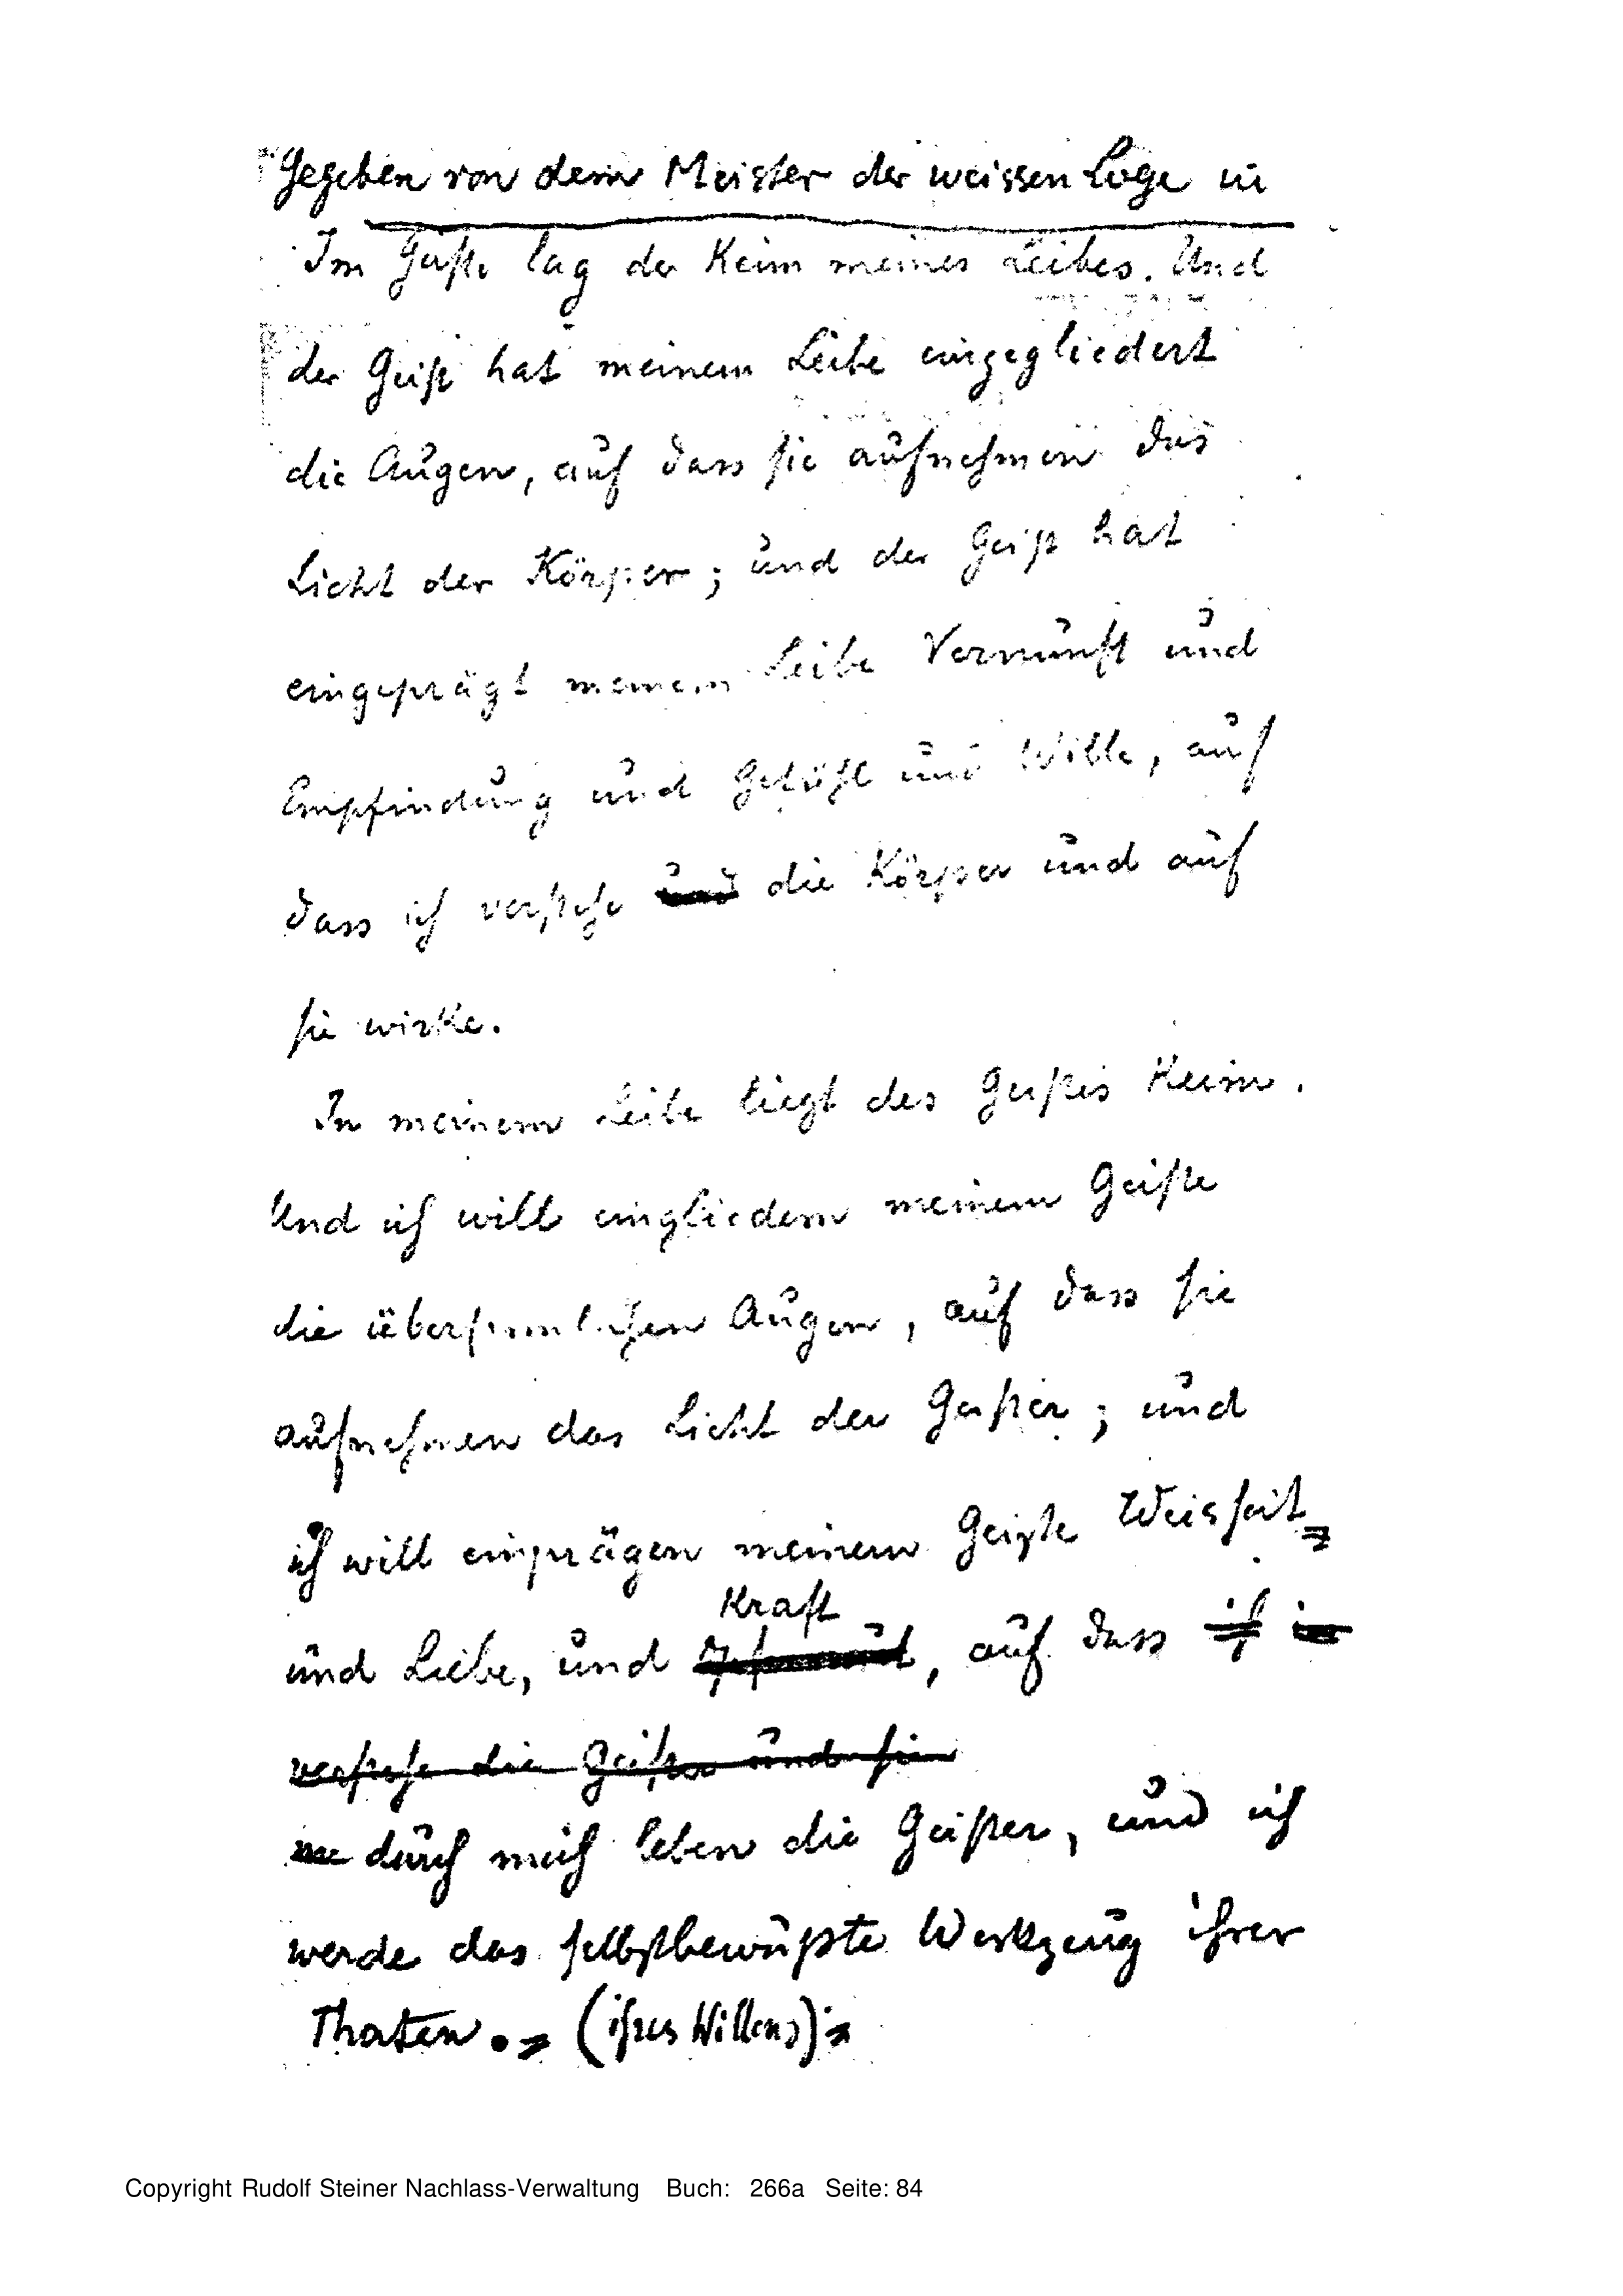 Gegeben von dem Meister der weissen Loge in
Im Geiste lag der Keim meines Leibes. Und
der Geist hat meinem Leibe eingegliedert
die Augen, auf dass sie aufnehmen das
Licht der Körper; und der Geist hat
eingeprägt meinem Leibe Vernunft und
Empfindung und Gefühl und Wille, auf
dass ich verstehe und die Körper und auf
sie wirke.
In meinem Leibe liegt des Geistes Keim.
Und ich will eingliedern meinem Geiste
die übersinnlichen Augen, auf dass sie
aufnehmen das Licht der Geister; und
ich will einprägen meinem Geiste Weisheit
Kraft
und Liebe, und , auf dass ich
verstehe die Geister und sie
durch mich leben die Geister, und ich
werde das selbstbewußte Werkzeug ihrer
Thaten. (ihres Willens)
Copyright Rudolf Steiner Nachlass-Verwaltung Buch: 266a Seite: 84